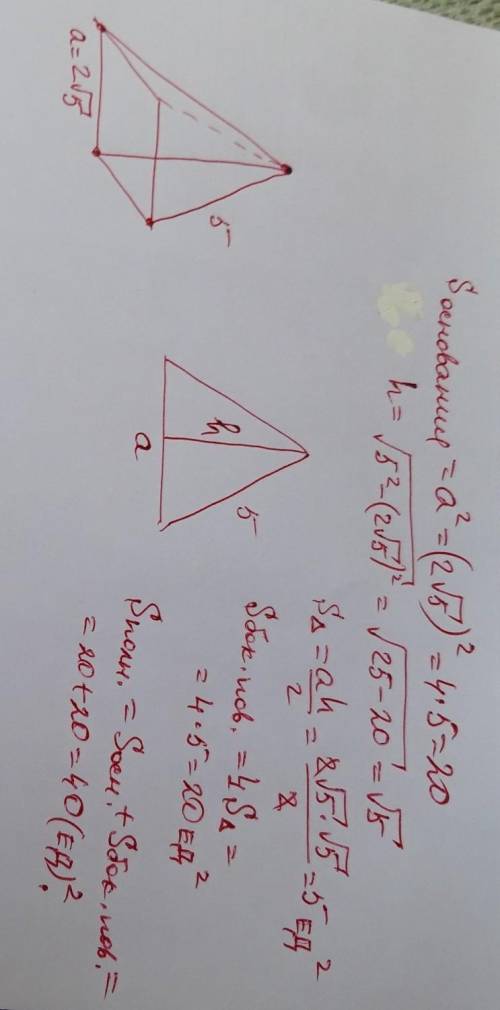 S основания = a² = (2√5)² = 4·5 = 20
h = √5²-(2√5)² = √25-20 = √5
a = 2√5
5
h
5
a
S△ = ah/2 = 2√5·√5/2 = 5 ЕД²
Sбок.пов. = 4S△ =
= 4·5 = 20 ЕД²
Sполн. = Sосн. + Sбок.пов. =
= 20+20 = 40 (ЕД)².